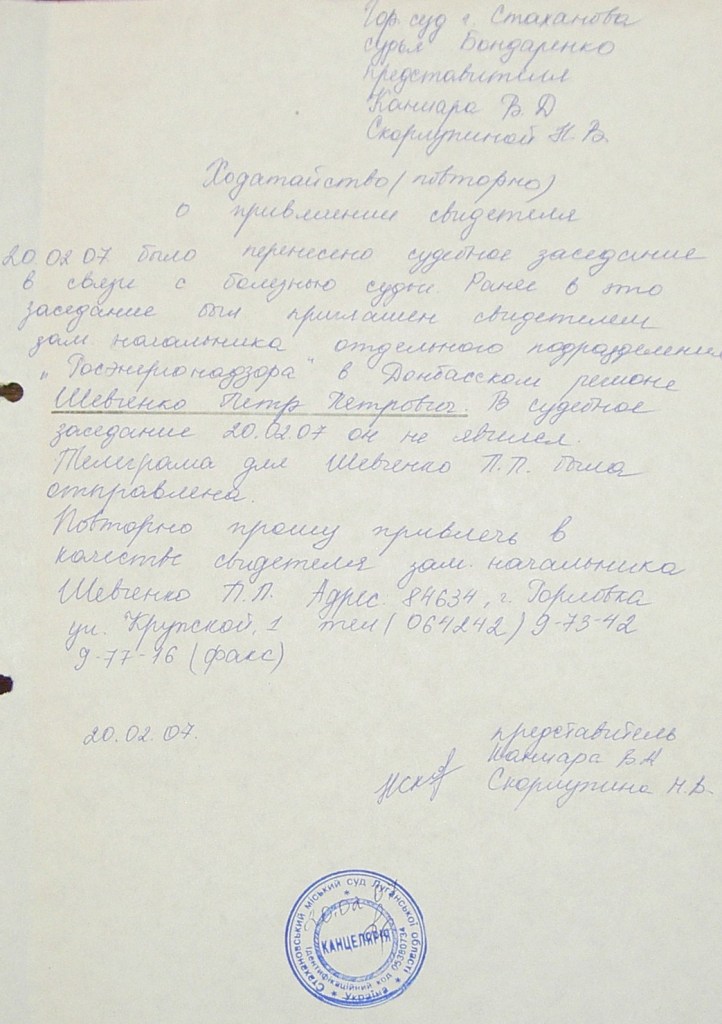 Гор. суд г. Стаханова
судья Бондаренко
представителя
Канцара В. Д
Скорлупиной Н. В.
Ходатайство (повторно)
о привлечении свидетеля
20.02.07 было перенесено судебное заседание
в связи с болезнью судьи. Ранее в это
заседание был приглашен свидетелем
зам. начальника отдельного подразделения
"Госэнергонадзора" в Донбасском регионе
Шевченко Петр Петрович. В судебное
заседание 20.02.07 он не явился.
Телеграма для Шевченко П.П. была
отправлена.
Повторно прошу привлечь в
качестве свидетеля зам. начальника
Шевченко П.П. Адрес. 84634, г. Горловка
ул. Крупской, 1 тел (064242) 9-73-42
9-77-16 (факс)
20.02.07.
представитель
Скорлупина Н.В.
Стахановський міський суд Луганської області
Ідентифікаційний код 05380734
КАНЦЕЛЯРІЯ
* Україна *
20.02.07